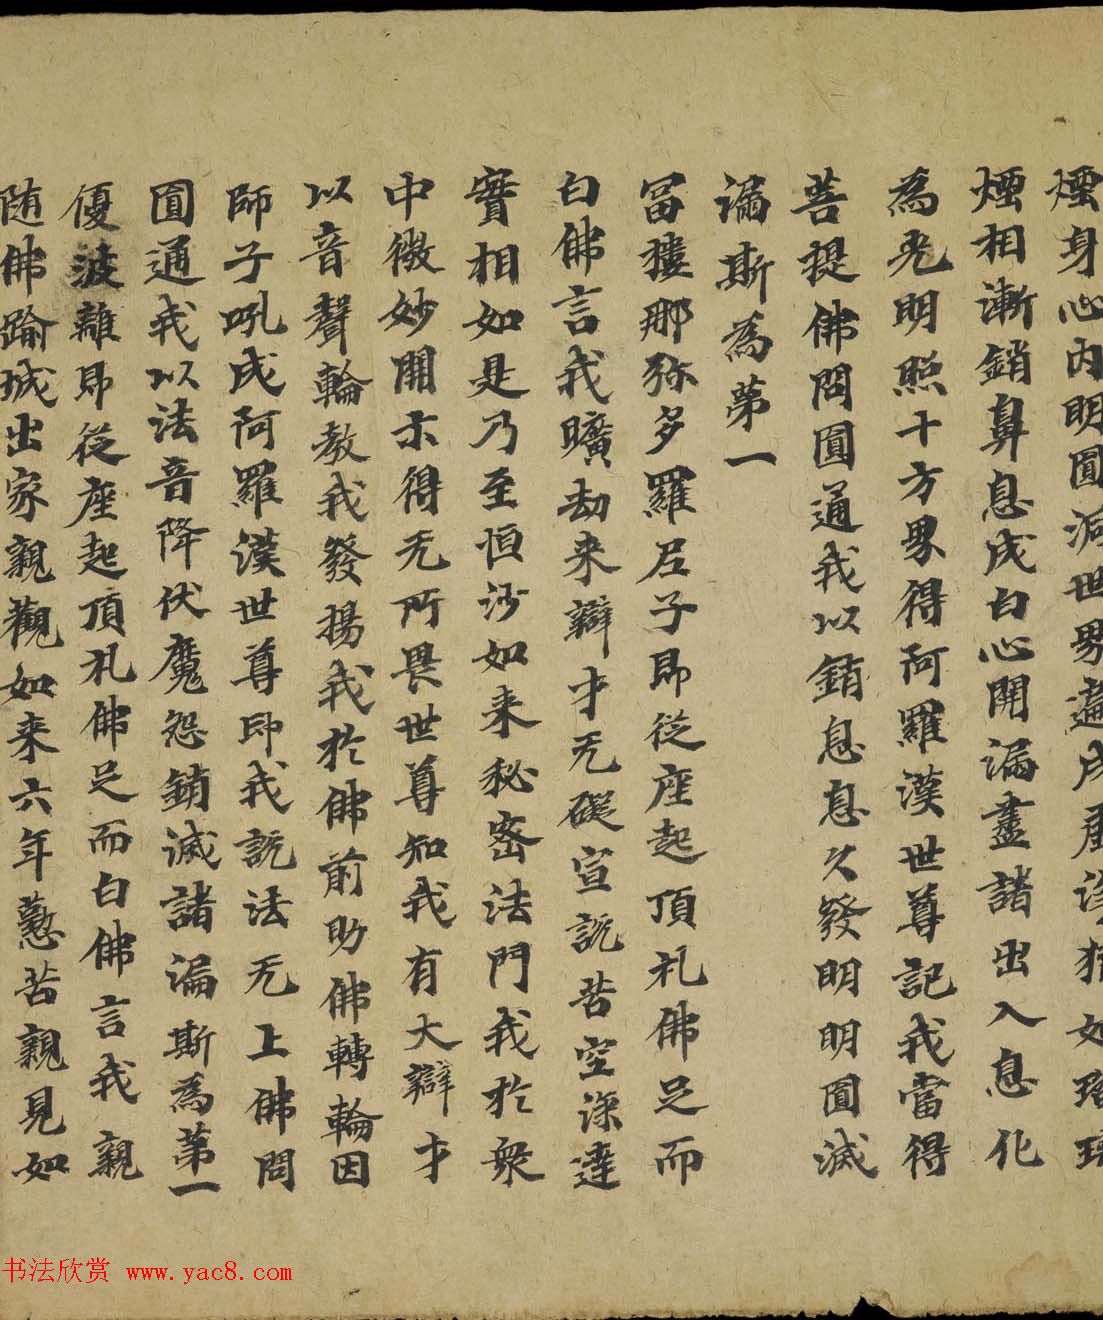 煙身心內明圓洞世界遍成虛淨猶如琉璃
煙相漸銷鼻息成白心開漏盡諸出入息化
為光明照十方界得阿羅漢世尊記我當得
菩提佛問圓通我以銷息息久發明明圓滅
漏斯為第一
富樓那弥多羅尼子即從座起頂礼佛足而
白佛言我曠劫来辯才无礙宣說苦空深達
實相如是乃至恒沙如来秘密法門我於衆
中微妙開示得无所畏世尊知我有大辯才
以音聲輪教我發揚我於佛前助佛轉輪因
師子吼成阿羅漢世尊印我說法无上佛問
圓通我以法音降伏魔怨銷滅諸漏斯為第一
優波離即從座起頂礼佛足而白佛言我親
随佛踰城出家親觀如来六年懃苦親見如
书法欣赏 www.yac8.com